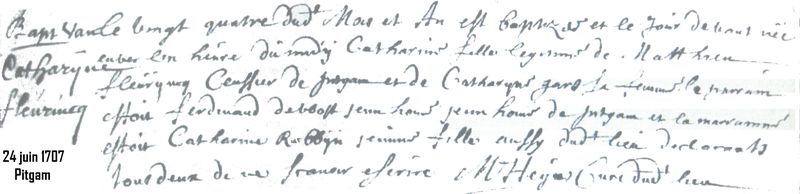 Bapt van Le vingt quatre dudt Mois et An est baptizée et le Jour devant née
Catharÿne envir. les heure du midÿ Catharine fille legitime de Matthieu
fleurÿncq Censsier de pitgam et de Catharÿne sa femme le parrain
fleurincq estoit ferdinand debbost jeun home jeun home de pitgam et la marrainne
estoit Catharine Robbÿn jeunne fille aussy dudt lieu declarants
tous deux de ne scavoir escrire Curé dudt lieu
24 juin 1707
Pitgam